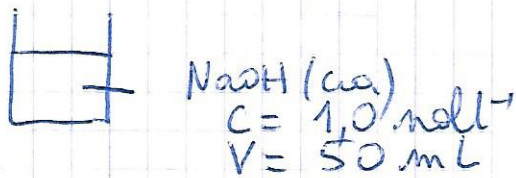 NaOH (aq)
C = 1,0 mol L⁻¹
V = 50 mL